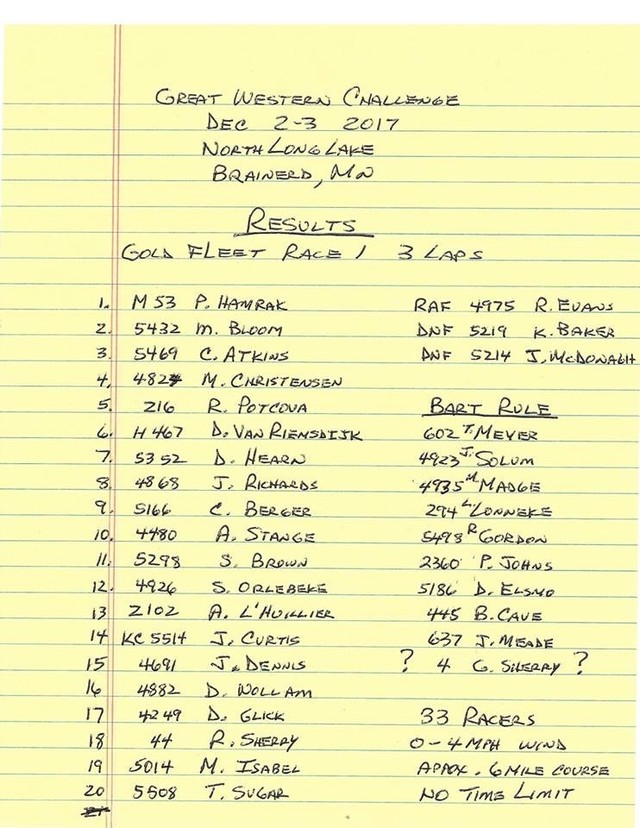 GREAT WESTERN CHALLENGE
DEC 2-3 2017
NORTH LONG LAKE
BRAINERD, MN
RESULTS
GOLD FLEET RACE 1 3 LAPS
1. M 53 P. HAMRAK
2. 5432 M. BLOOM
3. 5469 C. ATKINS
4. 4824 M. CHRISTENSEN
5. 216 R. POTCOVA
6. H 467 D. VAN RIENSDIJK
7. 5352 D. HEARN
8. 4868 J. RICHARDS
9. 5166 C. BERGER
10. 4480 A. STANGE
11. 5298 S. BROWN
12. 4926 S. ORLEBEKE
13 2102 A. L'HUILLIER
14 KC 5514 J. CURTIS
15 4691 J. DENNIS
16 4882 D. WOLLAM
17 4249 D. GLICK
18 44 R. SHERRY
19 5014 M. ISABEL
20 5508 T. SUGAR
21
RAF 4975 R. EVANS
DNF 5219 K. BAKER
DNF 5214 J. MCDONAGH
BART RULE
602 T. MEYER
4923 J. SOLUM
4935 M MADGE
294 L. LONNEKE
5498 R GORDON
2360 P. JOHNS
5186 D. ELSMO
445 B. CAVE
637 J. MEADE
? 4 G. SHERRY ?
33 RACERS
0-4 MPH WIND
APPOX. 6 MILE COURSE
NO TIME LIMIT